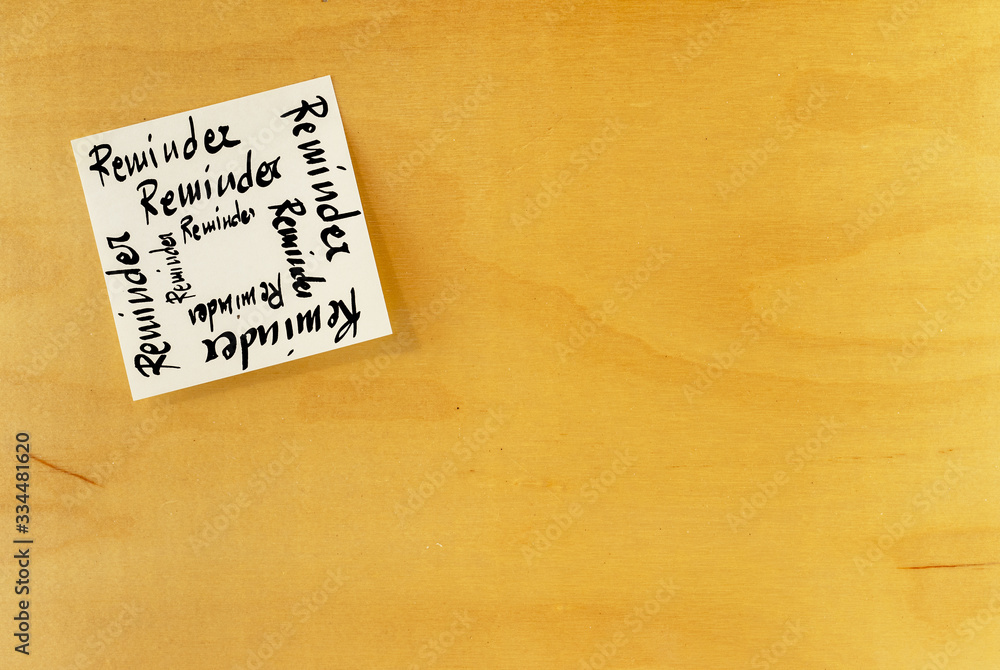 Reminder
Reminder
Reminder
Reminder
Reminder
Reminder
Reminder
Reminder
Reminder
Adobe Stock | #334481620